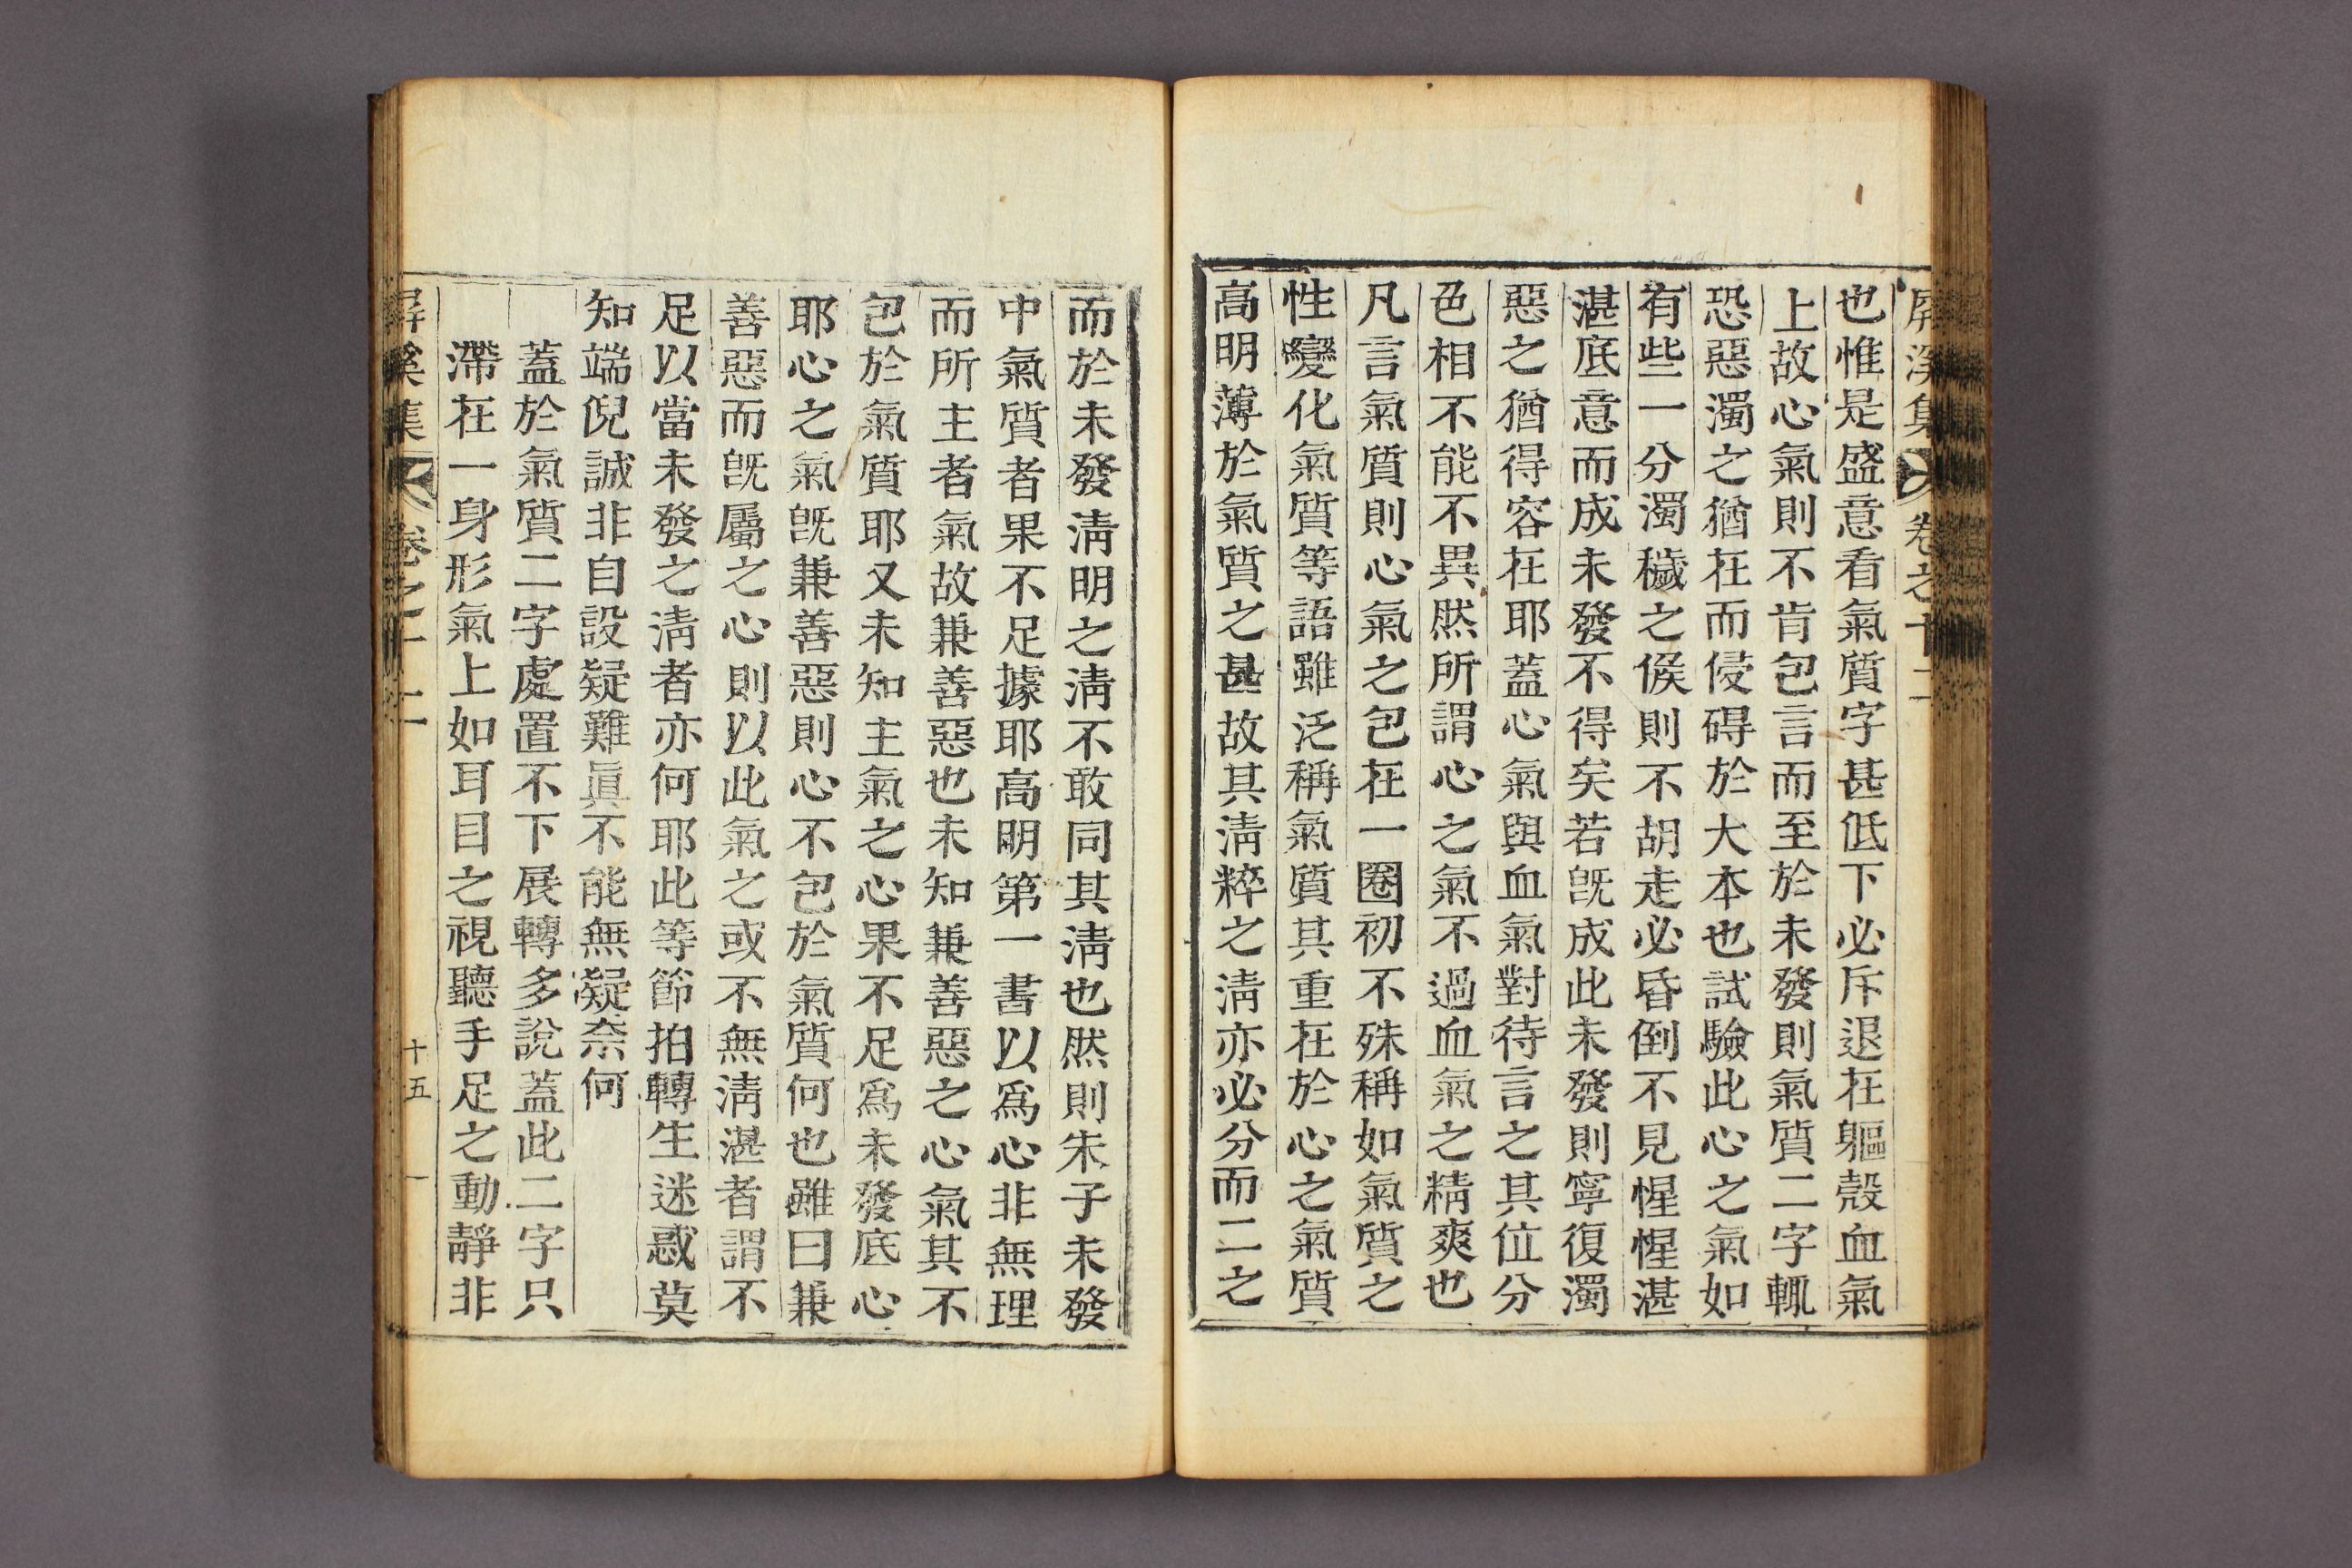 屛溪集 卷之十二
也惟是盛意看氣質字甚低下必斥退在軀殼血氣
上故心氣則不肯包言而至於未發則氣質二字輒
恐惡濁之猶在而侵碍於大本也試驗此心之氣如
有些一分濁穢之候則不胡走必昏倒不見惺惺湛
湛底意而成未發不得矣若旣成此未發則寧復濁
惡之猶得容在耶蓋心氣與血氣對待言之其位分
色相不能不異然所謂心之氣不過血氣之精爽也
凡言氣質則心氣之包在一圈初不殊稱如氣質之
性變化氣質等語雖泛稱氣質其重在於心之氣質
高明薄於氣質之甚故其淸粹之淸亦必分而二之
而於未發淸明之淸不敢同其淸也然則朱子未發
中氣質者果不足據耶高明第一書以爲心非無理
而所主者氣故兼善惡也未知兼善惡之心氣其不
包於氣質耶又未知主氣之心果不足爲未發底心
耶心之氣旣兼善惡則心不包於氣質何也雖曰兼
善惡而旣屬之心則以此氣之或不無淸湛者謂不
足以當未發之淸者亦何耶此等節拍轉生迷惑莫
知端倪誠非自設疑難眞不能無凝奈何
蓋於氣質二字處置不下展轉多說蓋此二字只
滯在一身形氣上如耳目之視聽手足之動靜非
屛溪集 卷之十二 十五